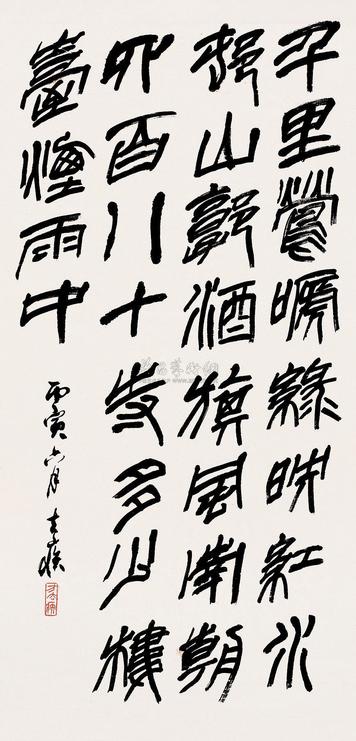 千里鶯嗁綠映紅水
邨山郭酒旗風南朝
四百八十寺多少樓
臺煙雨中
丙寅六月 去疾